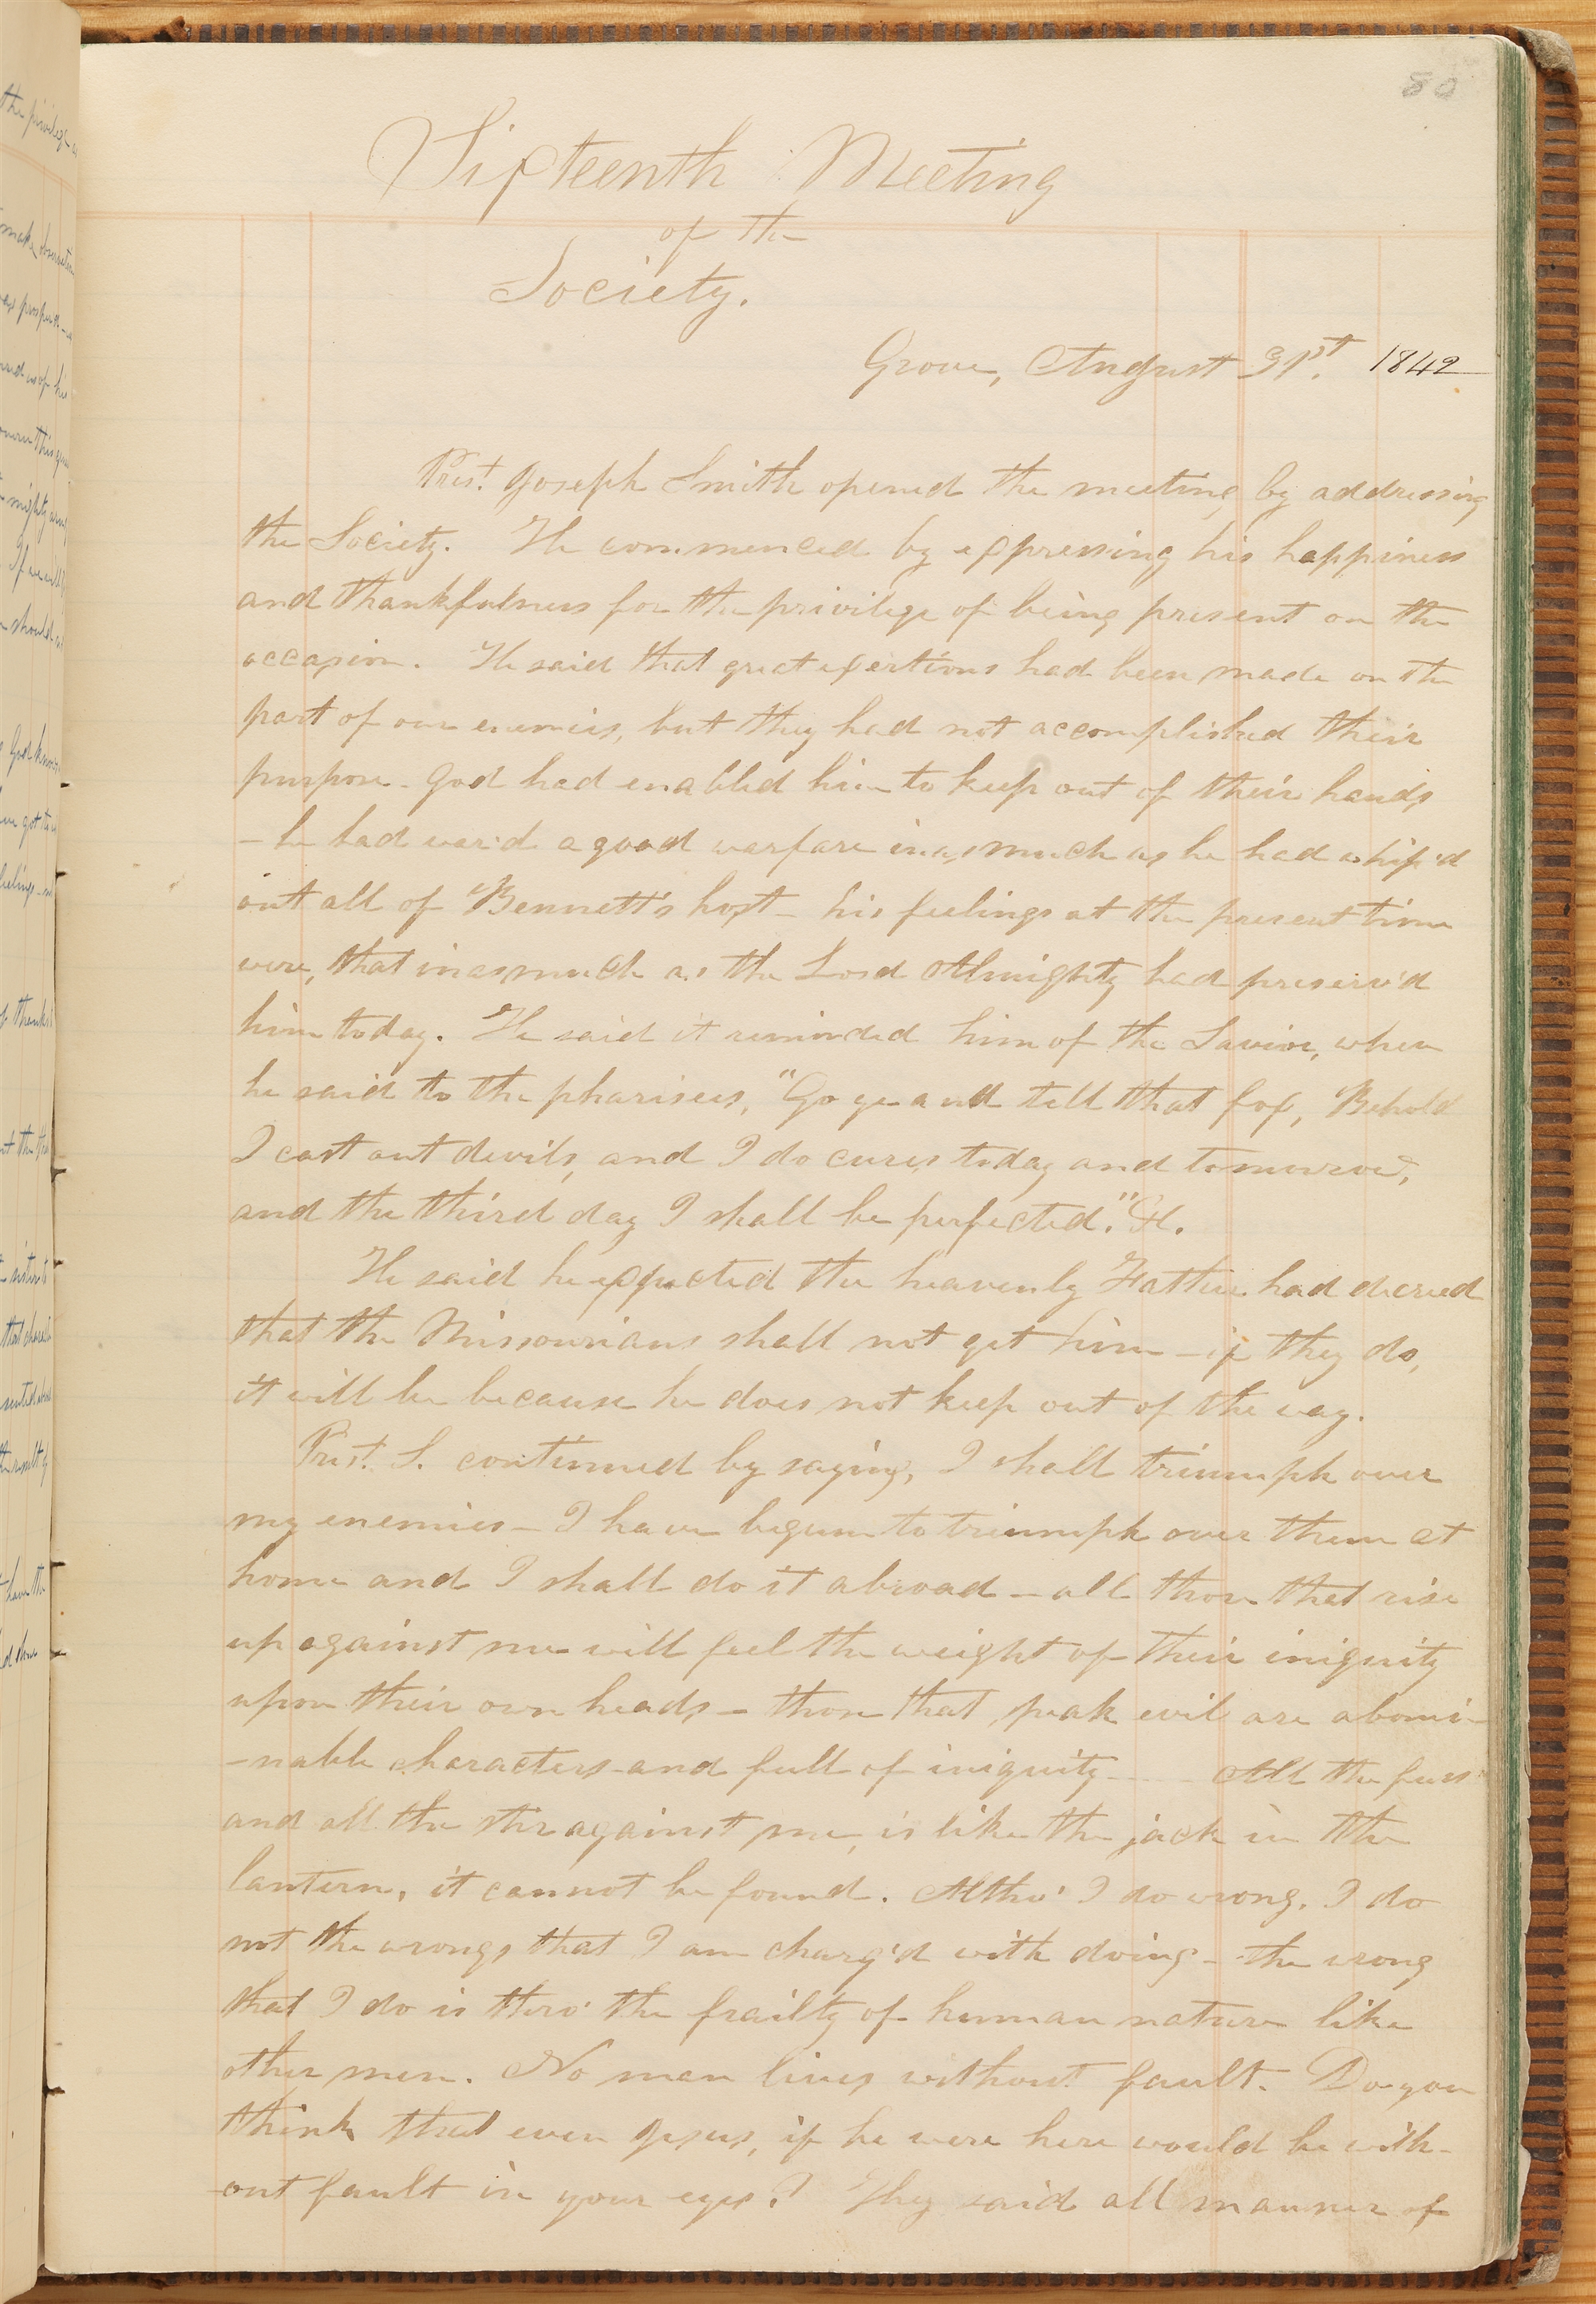 80
Fifteenth Meeting
of the
Society.
Grove, August 31st. 1842
Prest. Joseph Smith opened the meeting by addressing
the Society. He commenced by expressing his happiness
and thankfulness for the privilege of being present on the
occasion. He said that great exertions had been made on the
part of our enemies, but they had not accomplished their
purpose. God had enabled him to keep out of their hands
- he had war'd a good warfare inasmuch as he had whip'd
out all of Bennett's host - his feelings at the present time
were, that inasmuch as the Lord Almighty had preserv'd
him today. He said it reminded him of the Savior, when
he said to the pharisees, "Go ye and tell that fox, Behold
I cast out devils, and I do cures today and tomorrow,
and the third day I shall be perfected." &c.
He said he expected the heavenly Father had decreed
that the Missourians shall not get him - if they do,
it will be because he does not keep out of the way.
Prest. S. continued by saying, I shall triumph over
my enemies - I have begun to triumph over them at
home and I shall do it abroad - all those that rise
up against me will feel the weight of their iniquity
upon their own heads - those that speak evil are abomi-
-nable characters - and full of iniquity - All the fuss
and all the stir against me, is like the jack in the
lantern, it cannot be found. Altho' I do wrong, I do
not the wrongs that I am charg'd with doing - the wrong
that I do is thro' the frailty of human nature like
other men. No man lives without fault. Do you
think that even Jesus, if he were here would be with-
out fault in your eyes? They said all manner of